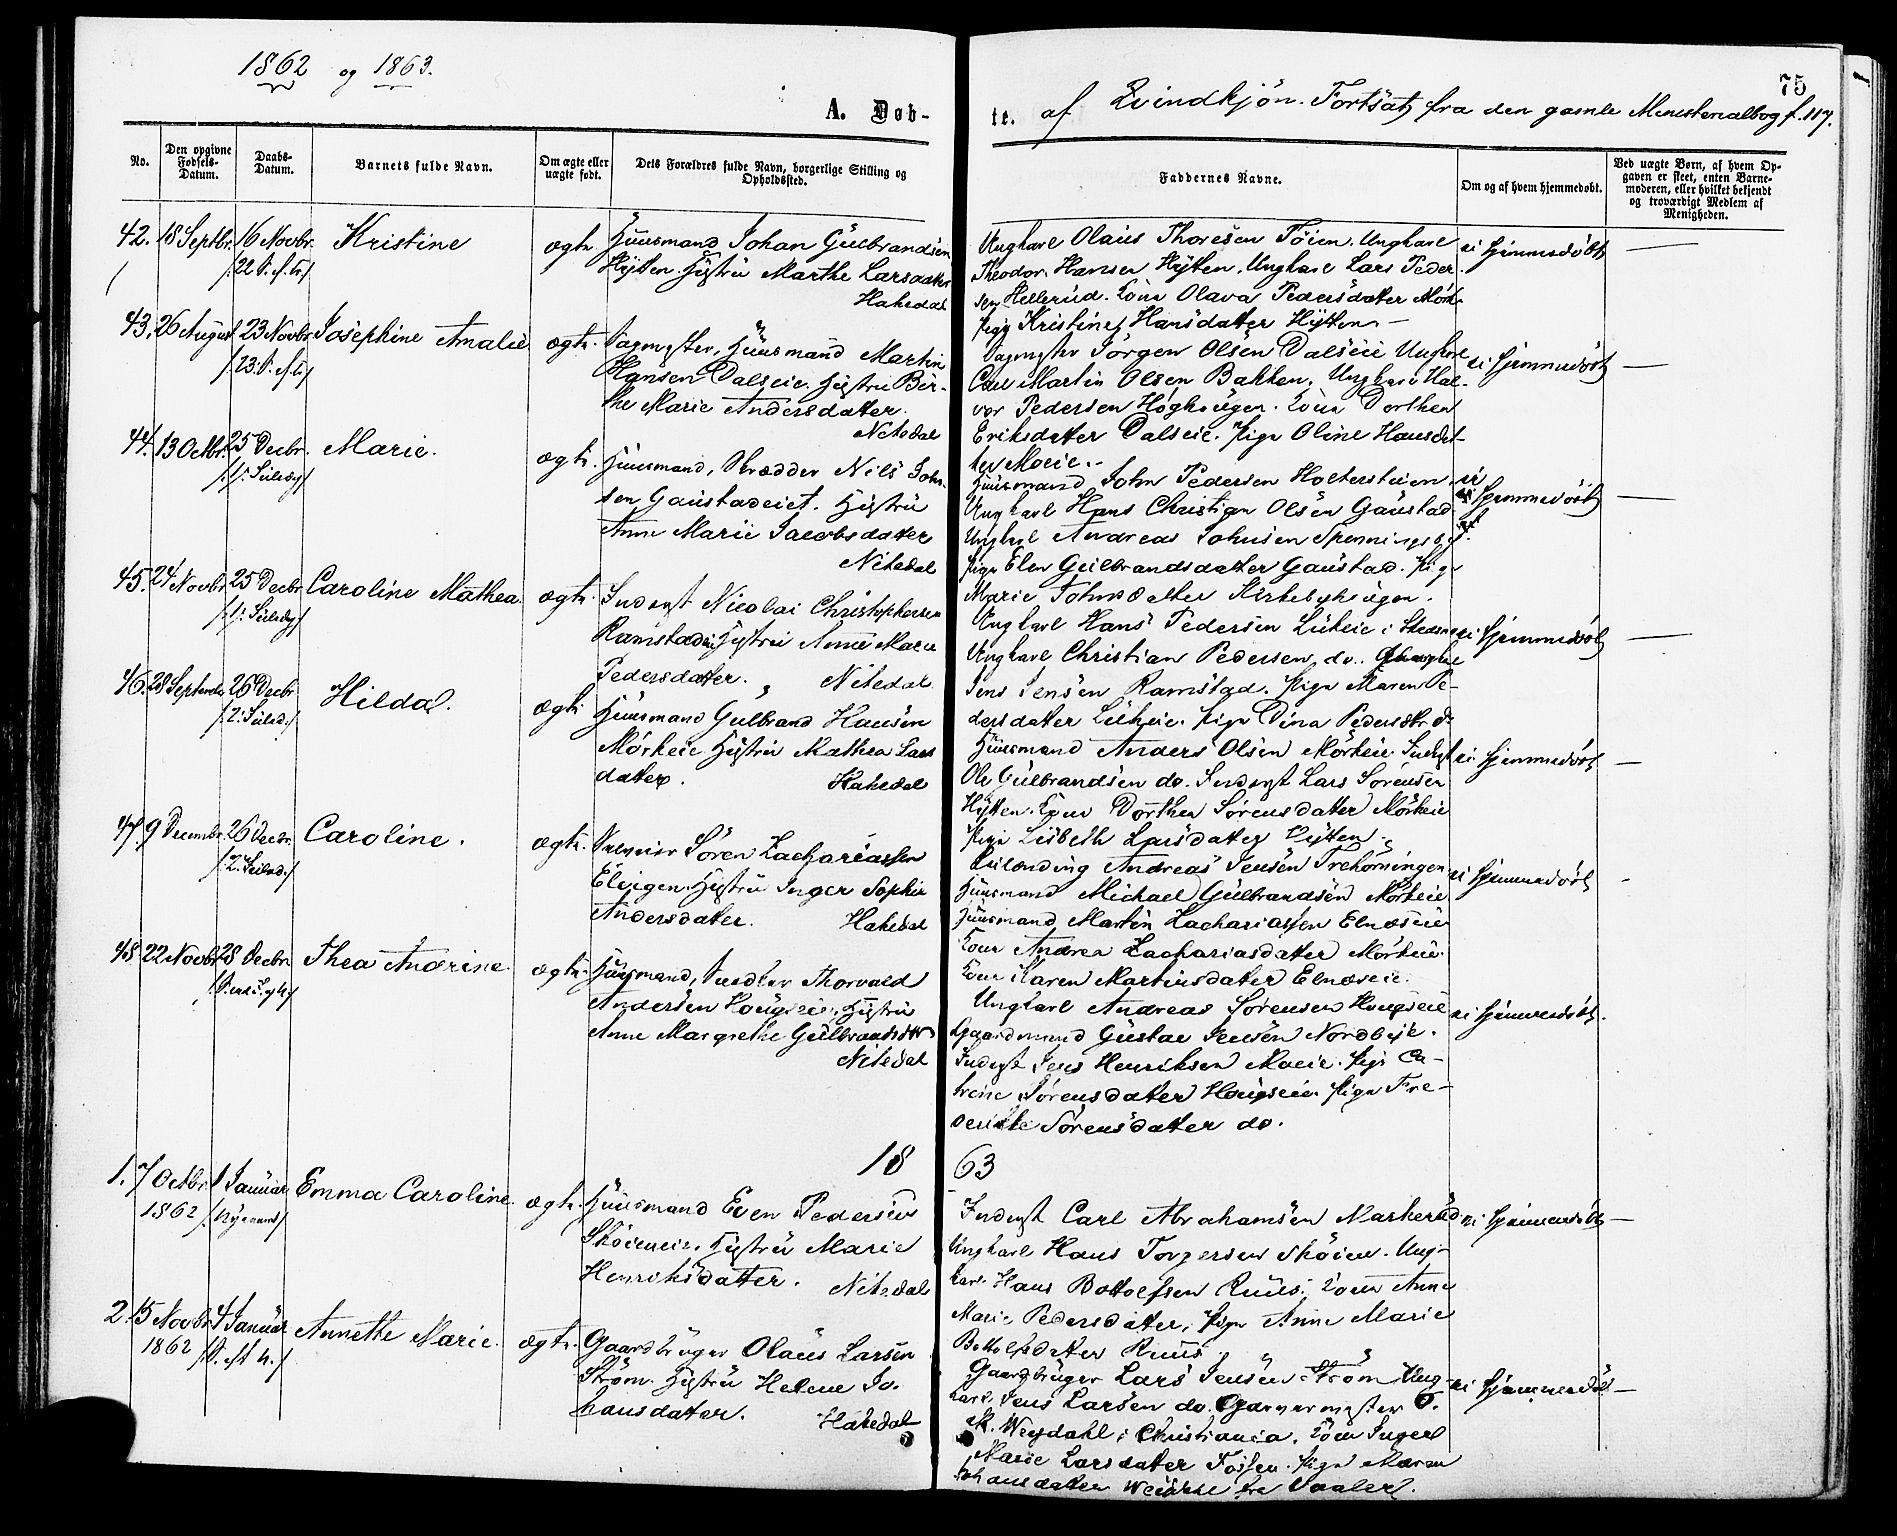 1862 og 1863.
75
A. Døb-
te. af Qvindkjøn. Fortsat fra den gamle Ministerialbog f. 117.
No.
Den opgivne Fødsels-Datum.
Daabs-Datum.
Barnets fulde Navn.
Om ægte eller uægte født.
Dets Forældres fulde Navn, borgerlige Stilling og Opholdssted.
Faddernes Navne.
Om og af hvem hjemmedøbt.
Ved uægte Børn, af hvem Op-
gaven er skeet, enten Barne-
moderen, eller hvilket bekjendt
og troværdigt Medlem af
Menigheden.
42. 18 Septbr. 16 Novbr. Kristine ægte Huusmand Johan Gulbrandsen
/22 S. e. Tr/ Hytten. Hustru Marthe Larsdatter
Hakedal
Ungkarl Olaus Thoresen Töien. Ungkarl
Theodor Hansen Hytten. Ungkarl Lars Peder-
sen Hellerud. Kone Olava Pedersdatter Mörk.
Pige Kristine Hansdatter Hytten.
ei hjemmedöbt
43. 26 August 23 Novbr. Josephine Amalie ægte. Sagmester, Huusmand Martin
/23 S. e. Tr/ Hansen Dalseie. Hustru Bir-
the Marie Andersdatter.
Nitedal
Sagmester Jörgen Olsen Dalseie Ungkarl
Carl Martin Olsen Bakken. Ungkarl Hal-
vor Pedersen Höghougen. Kone Dorthea
Eriksdatter Dalseie. Pige Oline Hansdat-
ter Moeie.
ei hjemmedöbt
44. 13 Octbr. 25 Decbr. Marie. ægte. Huusmand, Skrædder Nils John-
/1. Juledag/ sen Gaustadeiet. Hustru
Anne Marie Jacobsdatter
Nitedal
Huusmand John Pedersen Holtersteien.
Ungkarl Hans Christian Olsen Gaustad
Ungkarl Andreas Johnsen Spenningsby.
Pige Elen Gulbrandsdatter Gaustad. Pige
Marie Johnsdatter Kirkebyhougen.
ei hjemmedöbt
45. 24 Novbr. 25 Decbr. Caroline Mathea. ægte. Inderst Nicolai Christophersen
/1. Juledag/ Ramstadeie Hustru Anne Marie
Pedersdatter. Nitedal
Ungkarl Hans Pedersen Lukeie i Skedsmo
Ungkarl Christian Pedersen do. Ungkarl
Jens Jensen Ramstad. Pige Maren Pe-
dersdatter Lukeie. Pige Dina Pedersdtr do
ei hjemmedöbt
46. 28 September 26 Decbr. Hilda. ægte Huusmand Gulbrand Hansen
/2. Juled./ Mörkeie Hustru Mathea Lars
datter. Hakedal
Huusmand Anders Olsen Mörkeie. Inderst
Ole Gulbrandsen do. Inderst Lars Sörensen
Hytten. Kone Dorthea Sörensdatter Mörkeie
Pige Lisbeth Larsdatter Hytten.
ei hjemmedöbt
47. 9 Decembr. 26 Decbr. Caroline. ægte. Sören Zachariassen
/2. Juled./ Hustru Inger Sophie
Andersdatter. Hakedal
Andreas Jensen Trehörningen
Huusmand Michael Gulbrandsen Mörkeie
Huusmand Martin Zachariassen Elnæseie
Kone Andrea Zachariasdatter Mörkeie.
Kone Karen Martinsdatter Elnæseie.
ei hjemmedöbt
48. 22 Novbr. 28 Decbr. Thea Andrine. ægte. Huusmand, Snedker Thorvald
Andersen Hougseie. Hustru
Anne Margrethe Gulbrandsdtr
Nitedal
Ungkarl Andreas Sörensen Hougseie
Gaardmand Gustav Jensen Nordbye.
Inderst Jens Henriksen Moeie. Pige Ca-
trine Sörensdatter Hougseie. Pige Fre-
derikke Sörensdatter do.
ei hjemmedöbt.
18 63
1. 7 Octbr. 1862 1 Januar Emma Caroline. ægte. Huusmand Even Pedersen
/Nyeaars/ Sköieneie. Hustru Marie
Henriksdatter. Nitedal
Inderst Carl Abrahamsen Markerud
Ungkarl Hans Torgersen Sköien. Ung-
karl Hans Bottolfsen Ruus. Kone Anne
Marie Pedersdatter, Pige Anne Marie
Bottolfsdatter Ruus.
ei hjemmedöbt
2. 15 Novbr. 1862 4 Januar Annette Marie. ægte. Gaardbruger Olaus Larsen
/S. eft. N./ Ström. Hustru Helene Jo-
hansdatter. Hakedal
Gaardbruger Lars Jensen Ström Ung-
karl Jens Larsen do. Garvermester O.
M. Weydahl i Christiania. Kone Ingeri
Marie Larsdatter Fossen. Pige Maren
Johansdatter fra Vaaler.
ei hjemmedöbt